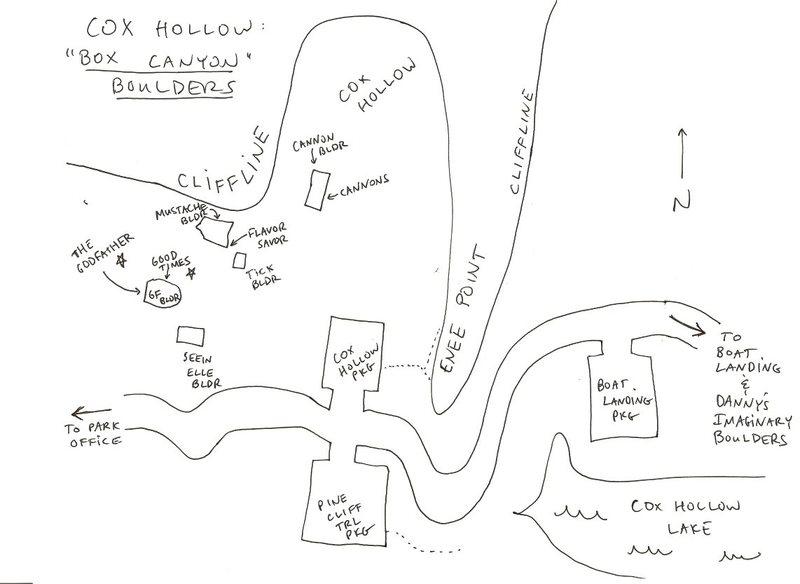 COX HOLLOW:
"BOX CANYON"
BOULDERS
COX
HOLLOW
CLIFFLINE
CANNON
BLDR
CANNONS
CLIFFLINE
N
MUSTACHE
BLDR
FLAVOR
SAVOR
TICK
BLDR
THE
GODFATHER
GOOD
TIMES
GF
BLDR
SEEIN
ELLE
BLDR
ENEE POINT
COX
HOLLOW
PKG
BOAT.
LANDING
PKG
TO
BOAT
LANDING
&
DANNY'S
IMAGINARY
BOULDERS
TO PARK
OFFICE
PINE
CLIFF
TRL
PKG
COX HOLLOW
LAKE